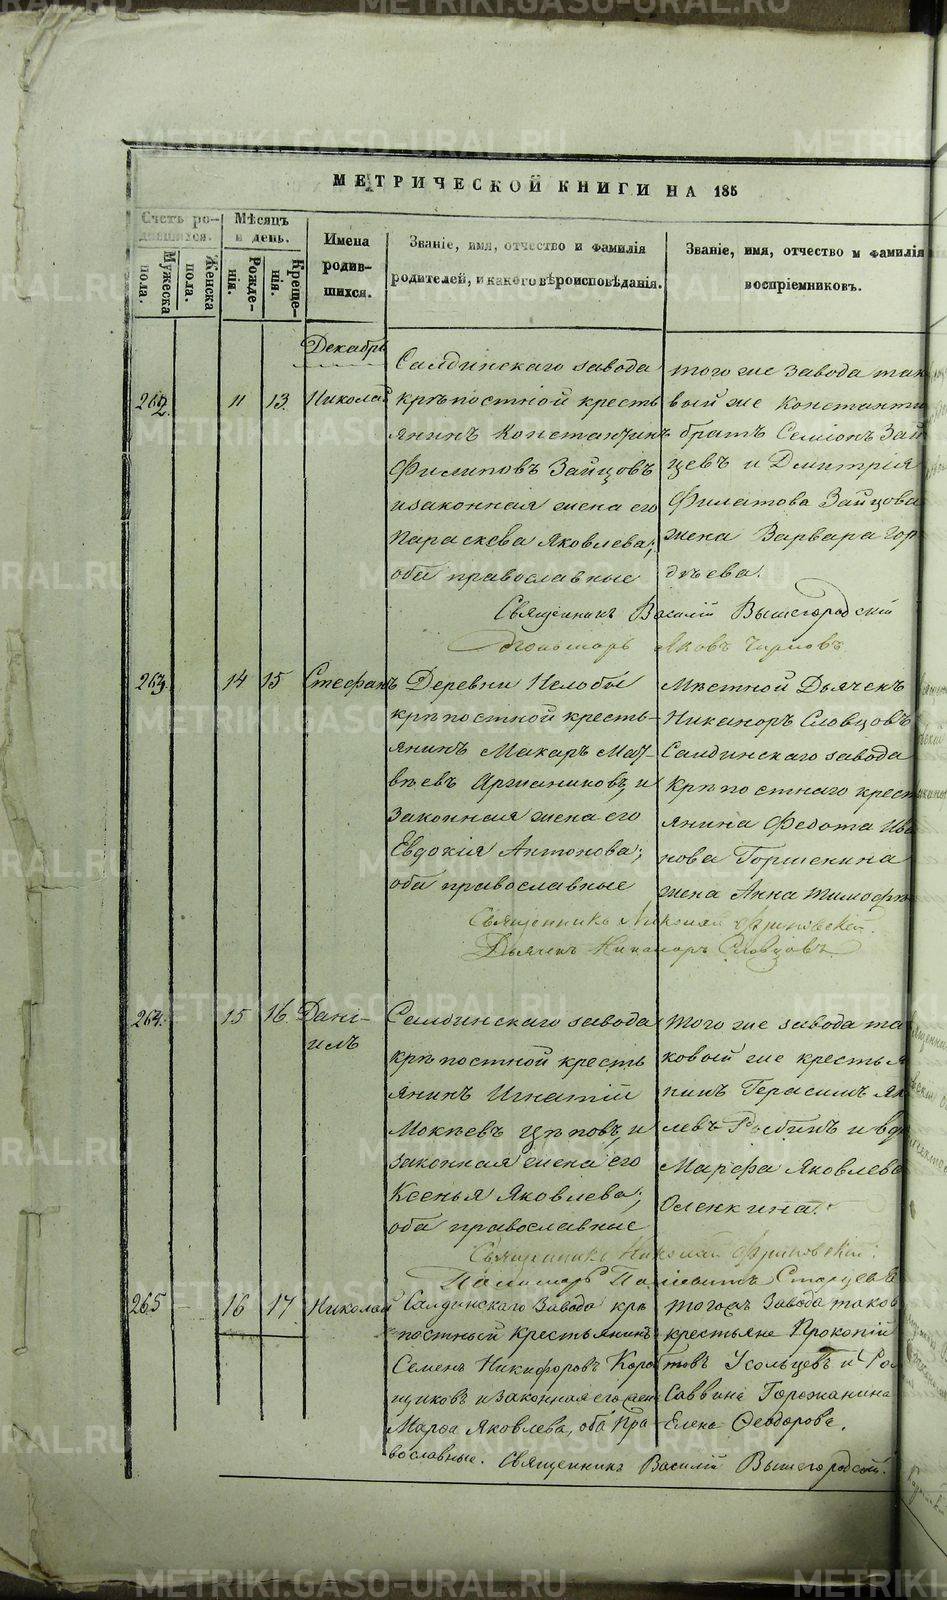 МЕТРИЧЕСКОЙ КНИГИ НА 185
Счетъ ро-
дившихся.
Мѣсяцъ
и день.
Имена
родив-
шихся.
Званіе, имя, отчество и фамилія
родителей, и какого вѣроисповѣданія.
Званіе, имя, отчество и фамилія
воспріемниковъ.
Мужеска
пола.
Женска
пола.
Рожде-
нія.
Креще-
нія.
Декабрь
262. 11 13. Николай
Салдинскаго завода
крѣпостной кресть
янинъ Константинъ
Филиповъ Зайцовъ
и законная жена его
Параскева Яковлева;
оба православные
того же завода так
вый же Константи
братъ Семіонъ Зай
цевъ и Дмитрія
Филатова Зайцова
жена Варвара Гор
дѣева.
Священникъ Василій Вышегородскій
Пономарь Яковъ
263. 14 15 Стефанъ
Деревни Нелобы
крѣпостной кресть-
янинъ Макаръ Мат-
вѣевъ Аржаниковъ, и
законная жена его
Евдокія Антонова;
оба православные
Мѣстной Дьячекъ
Никаноръ Словцовъ
Салдинскаго завода
крѣпостнаго крест
янина Федота Ива
нова Горшенина
жена Анна Тимофѣ
Священникъ Николай
Дьячекъ Никаноръ Словцовъ.
264. 15 16. Дані-
илъ
Салдинскаго завода
крѣпостной кресть
янинъ Игнатій
Мокѣевъ Цѣповъ, и
законная жена его
Ксенья Яковлева;
оба православные
того же завода та
ковый же крестья
нинъ Герасимъ Як
левъ и вд
Марфа Яковлева
Оленкина.
Священникъ Николай
Пономарь Старцевъ
265 - 16 17. Николай
Салдинскаго Завода крѣ
постный крестьянинъ
Семенъ Никифоровъ Коро
щиковъ и законная его жена
Марѳа Яковлева, оба Пра
вославные.
тогожъ Завода таков
крестьяне Прокопій
товъ Усольцевъ и
Саввина Горожанина
Елена Ѳеодорова.
Священникъ Василій Вышегородскій.
METRIKI.GASO-URAL.RU